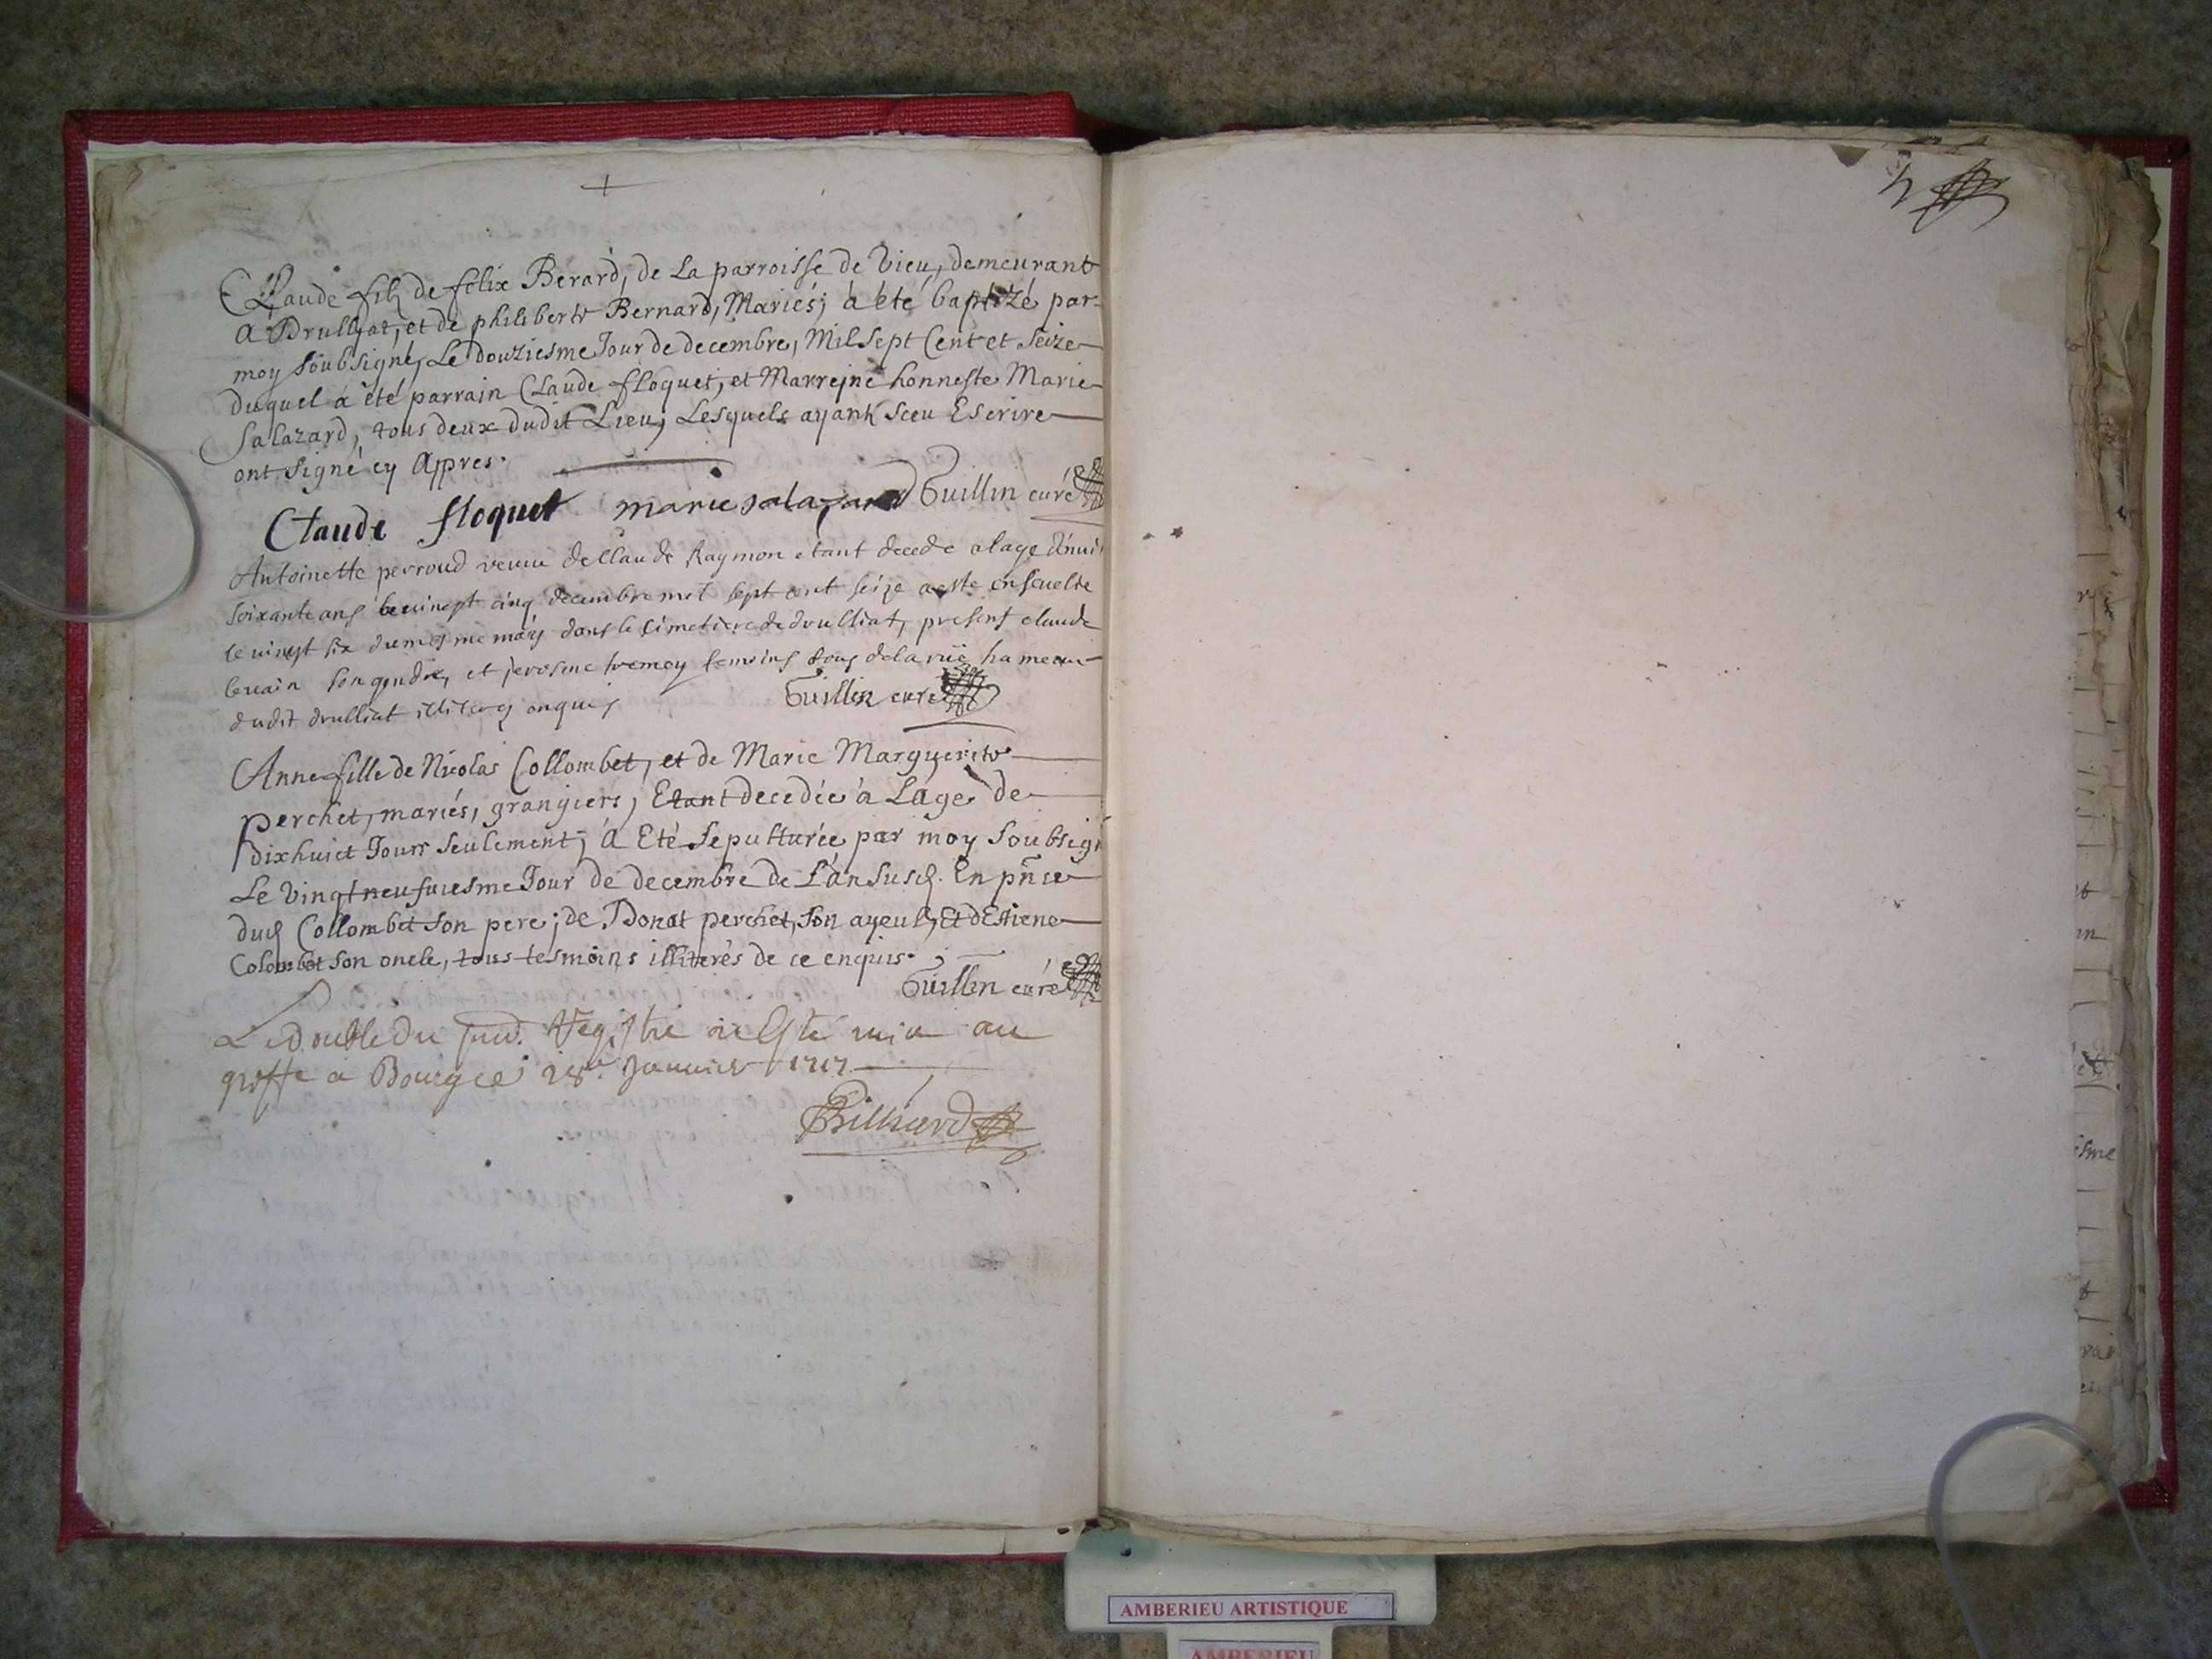 Claude filz de felix Berard, de La parroisse de Vieu, demeurant
A Drulliat, et de philiberte Bernard, Mariés; à été baptizé par
moy soubsigné, Le douziesme Jour de decembre, Mil Sept Cent et Seize
duquel à été parrain Claude floquet, et Marreine honneste Marie
Salazard, tous deux dudit Lieu, Lesquels ayant sceu Escrire
ont signé cy Appres.
Claude floquet marie salazard Guillin curé
Antoinette perroud veuve de Claude Raymon etant decede a lage
soixante ans le vingt cinq decembre mil sept cent seize a este ensevelie
le vingt six du mesme moys dans le cimetiere de drulliat, present claude
levain son gendre, et jerosme tremoy temoins tous de la rüe hameau
dudit drulliat enquis
Guillin curé
Anne fille de Nicolas Collombet, et de Marie Marguerite
perchet, mariés, grangiers, Etant decedée à Lâge de
dixhuict Jours seulement, à Eté sepulturée par moy Soubsigé
Le Vingtneufuiesme Jour de decembre de L'an susd. En pñce
dud Collombet son pere; de Donat perchet, son ayeul, Et d'Estiene
Colombet son oncle, tous tesmoins illiterés de ce enquis.
Guillin curé
Le double du Registre a Esté mis au
greffe a Bourg ce 28e Janvier 1717
Billiard
4
AMBERIEU ARTISTIQUE
AMBERIEU